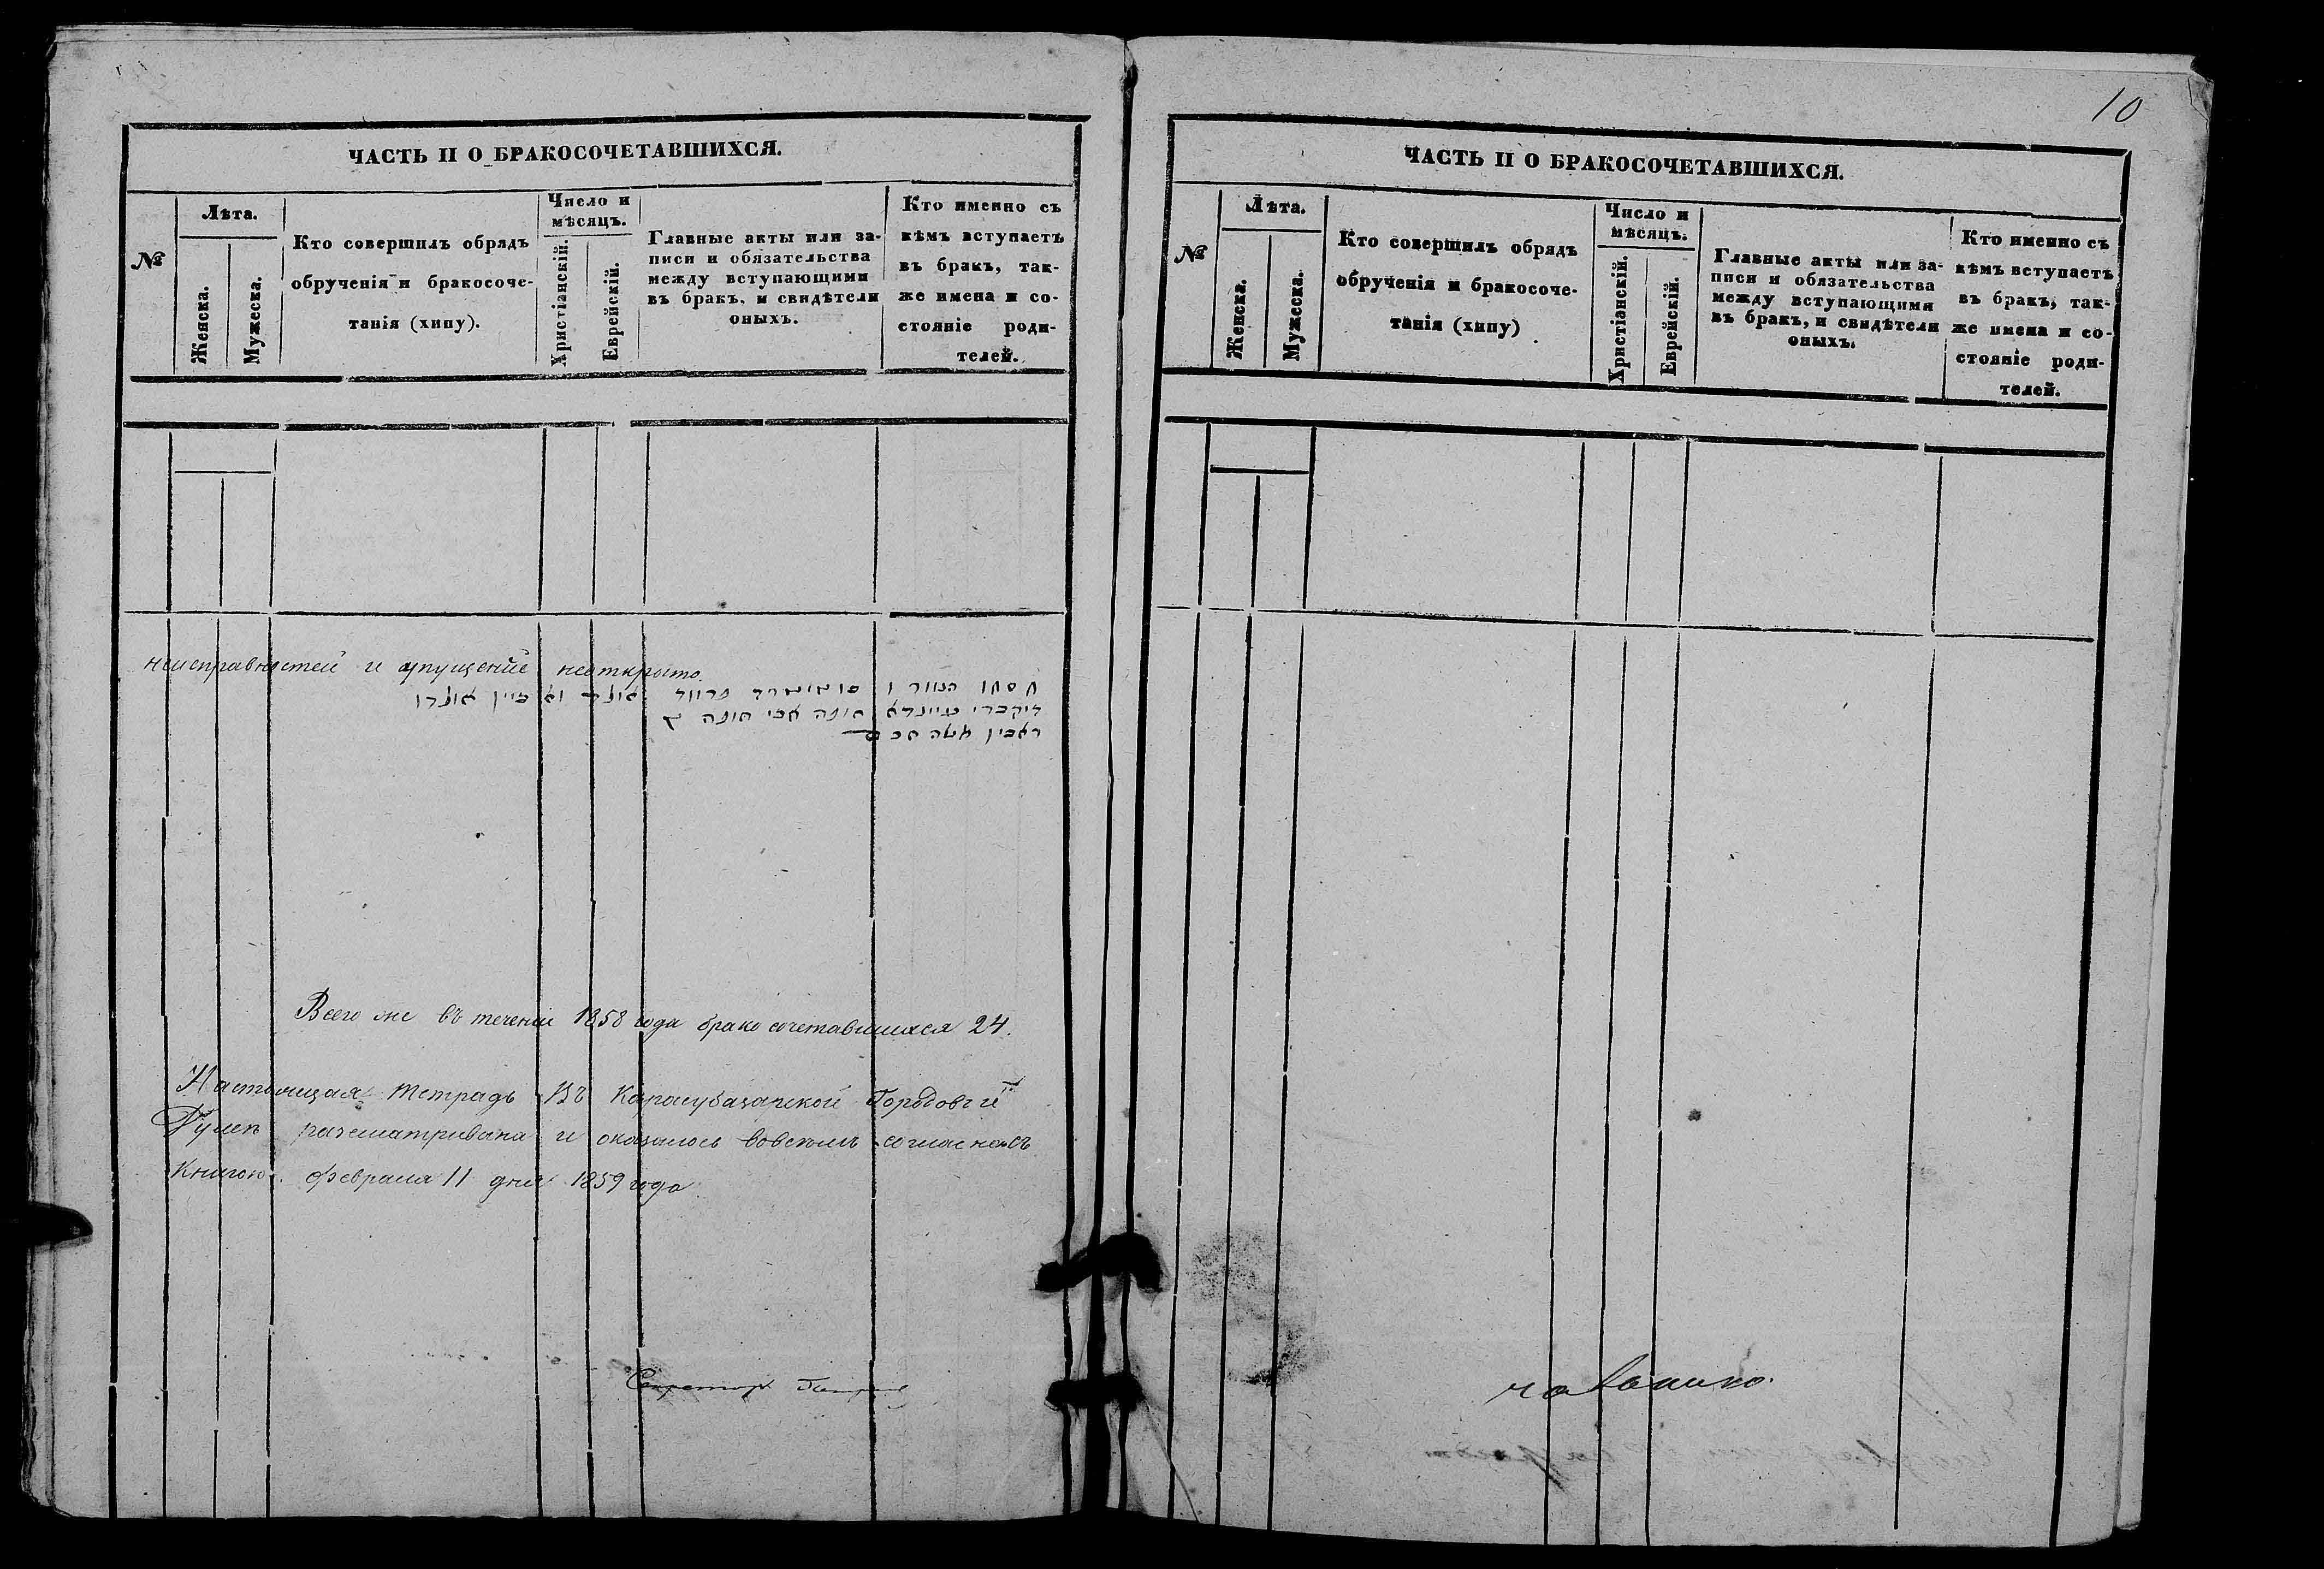 ЧАСТЬ II О БРАКОСОЧЕТАВШИХСЯ.
№
Лѣта.
Женска.
Мужеска.
Кто совершилъ обрядъ
обрученія и бракосоче-
танія (хипу).
Число и
мѣсяцъ.
Христіанскій.
Еврейскій.
Главные акты или за-
писи и обязательства
между вступающими
въ бракъ, и свидѣтели
оныхъ.
Кто именно съ
кѣмъ вступаетъ
въ бракъ, так-
же имена и со-
стояніе роди-
телей.
неисправностей и упущеніе неоткрыто.
Всего же въ теченіи 1858 года бракосочетавшихся 24.
Настоящая тетрадь въ Карасубазарской Городовой
Думѣ разсматривана и оказалось вовсемъ согласна съ
книгою. Февраля 11 дня 1859 года
Секретарь
10
ЧАСТЬ II О БРАКОСОЧЕТАВШИХСЯ.
№
Лѣта.
Женска.
Мужеска.
Кто совершилъ обрядъ
обрученія и бракосоче-
танія (хипу)
Число и
мѣсяцъ.
Христіанскій.
Еврейскій.
Главные акты или за-
писи и обязательства
между вступающими
въ бракъ, и свидѣтели
оныхъ.
Кто именно съ
кѣмъ вступаетъ
въ бракъ, так-
же имена и со-
стояніе роди-
телей.